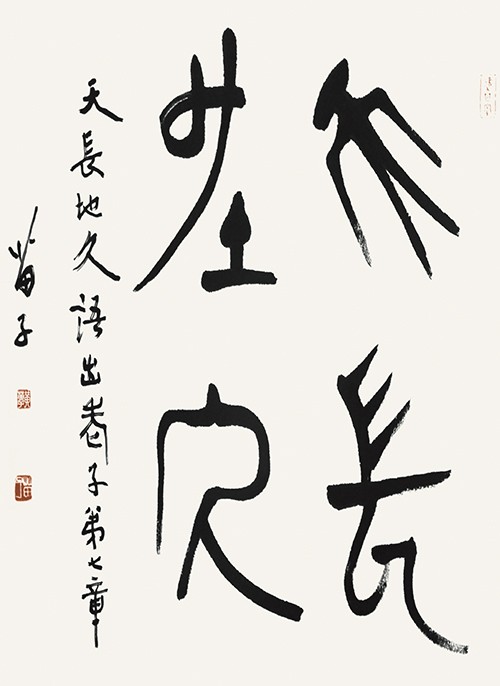 天長
地久
天長地久語出老子第七章
苗子